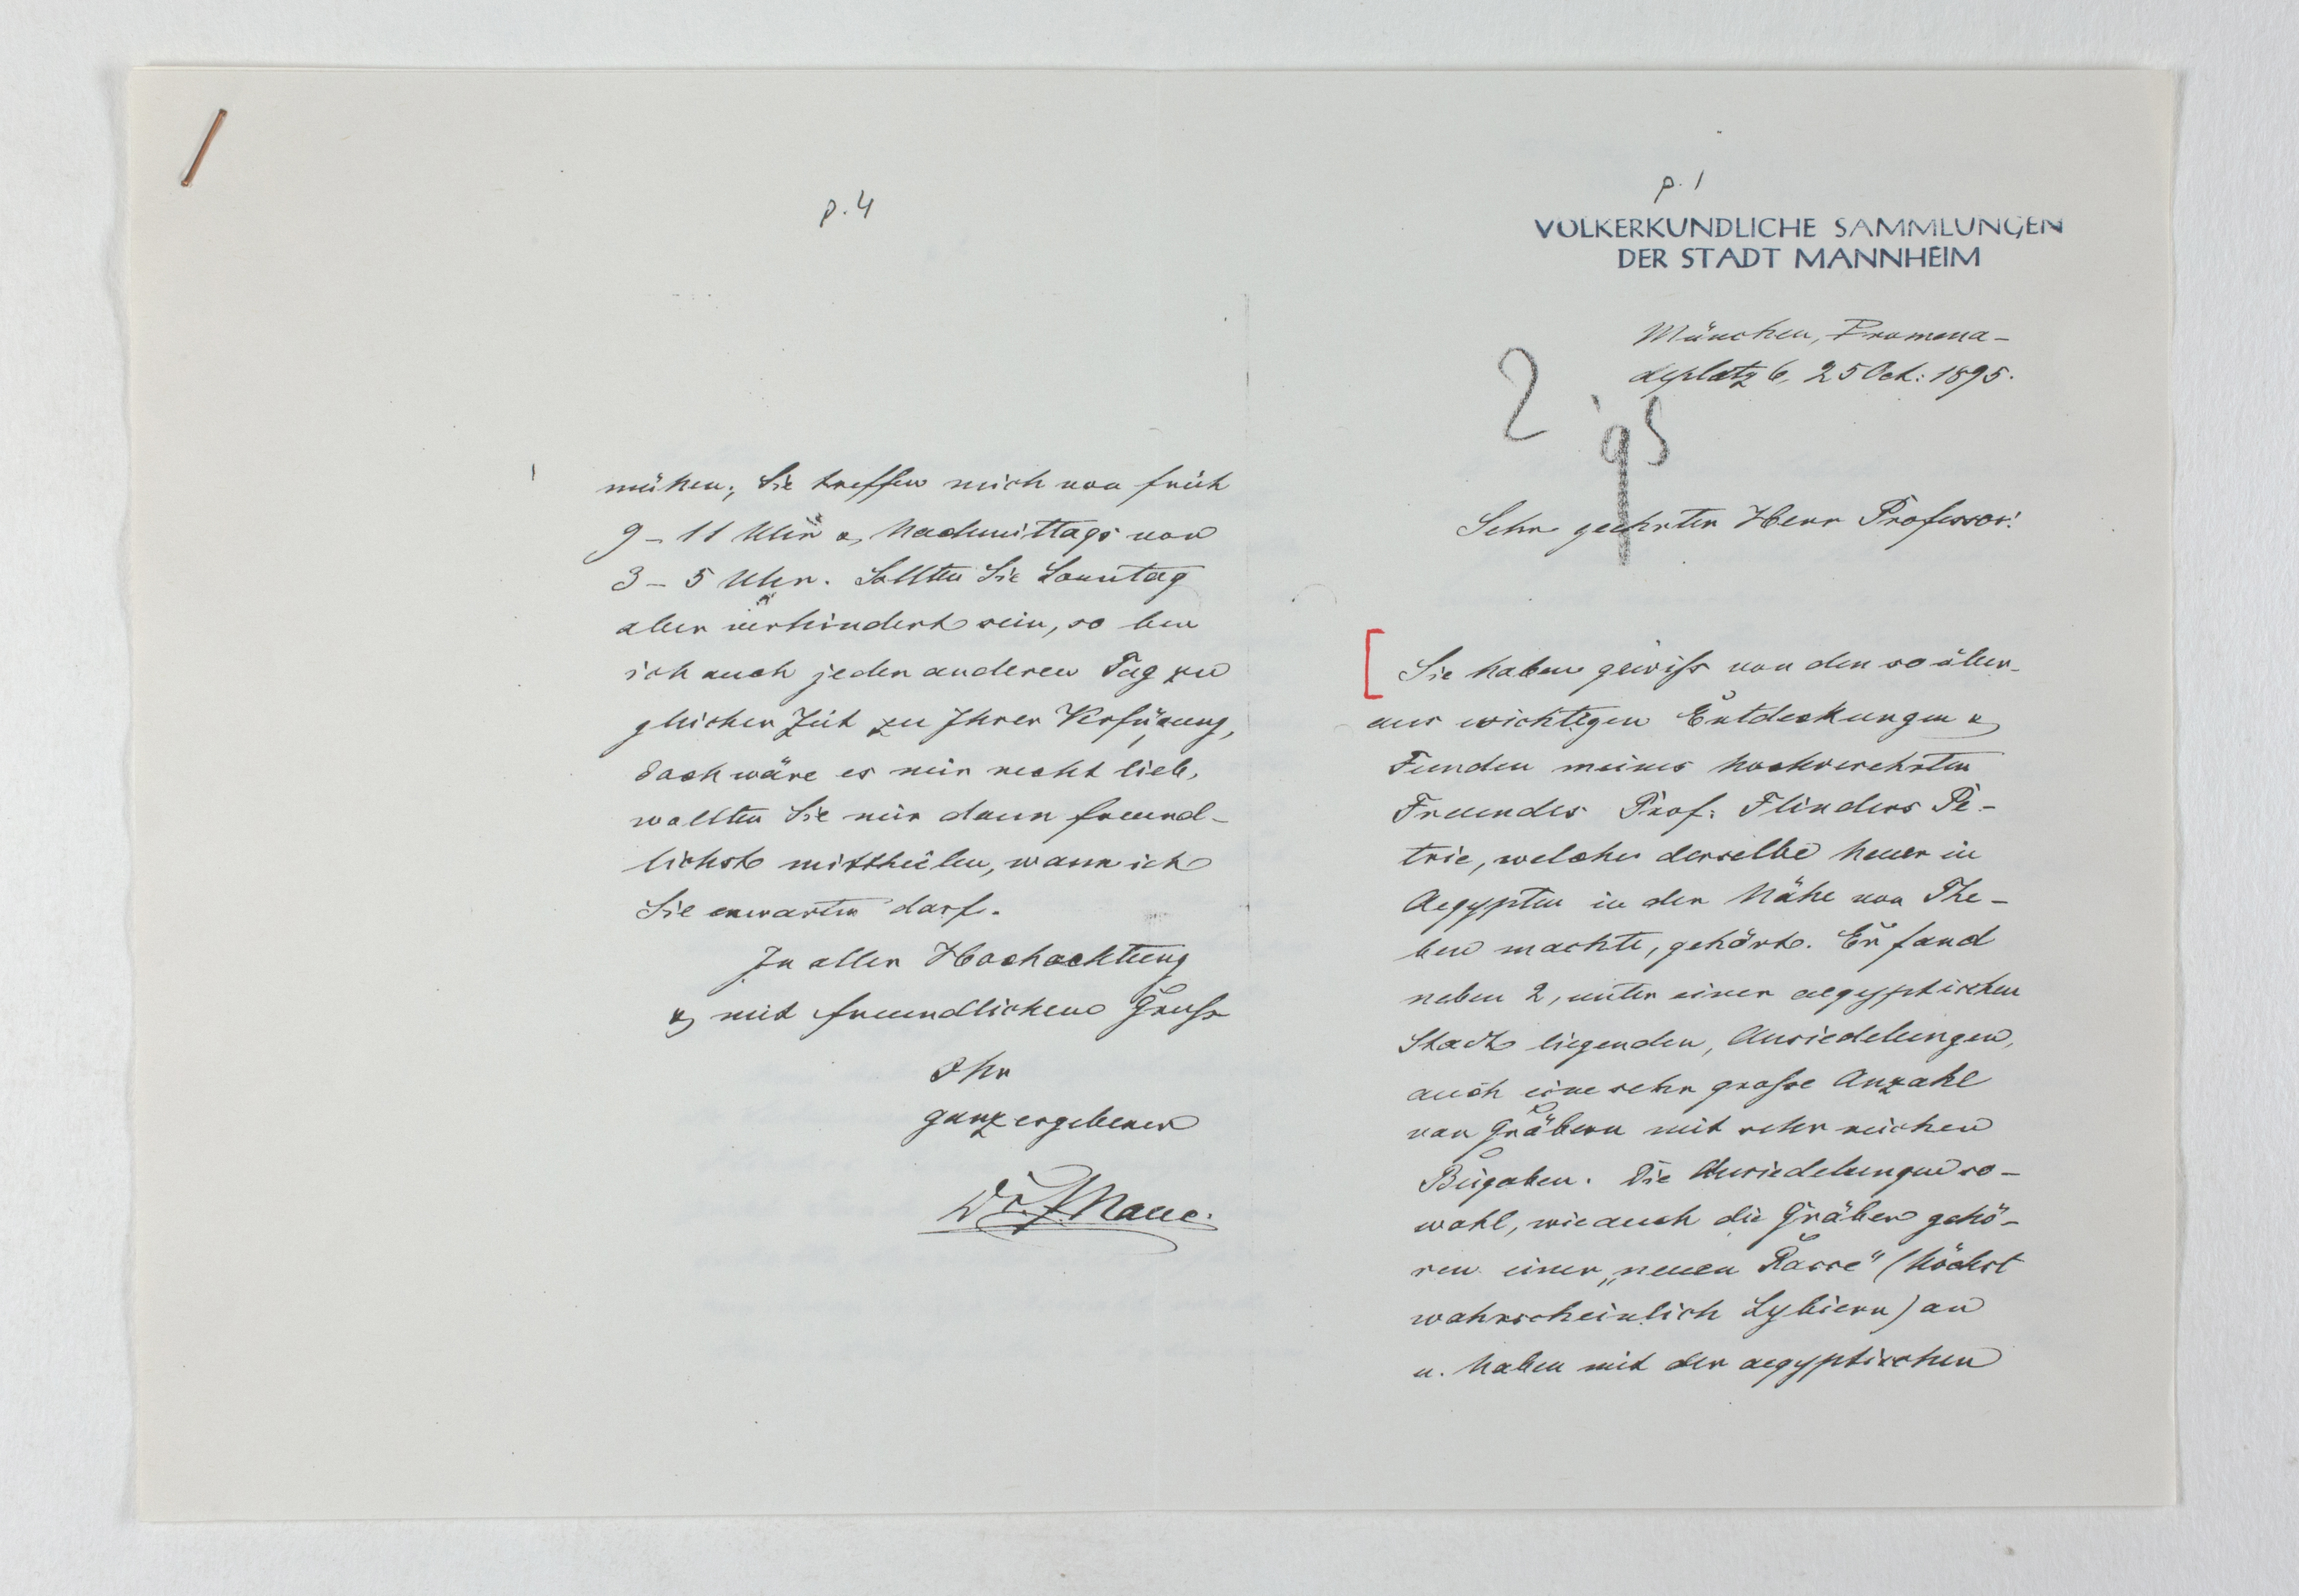 p. 4
mühen; Sie treffen mich von früh
9 – 11 Uhr u. Nachmittags von
3 – 5 Uhr. Sollten Sie Sonntag
aber verhindert sein, so bin
ich auch jeden anderen Tag zu
gleicher Zeit zu Ihrer Verfügung,
doch wäre es mir recht lieb,
wollten Sie mir dann freund-
lichst mittheilen, wann ich
Sie erwarten darf.
In aller Hochachtung
u. mit freundlichem Gruß
Ihr
ganz ergebener
Dr. J. Naue.
p. 1
VÖLKERKUNDLICHE SAMMLUNGEN
DER STADT MANNHEIM
München, Promena-
deplatz 6, 25 Oct: 1895.
2
95
Sehr geehrter Herr Professor!
Sie haben gewiß von den so über-
aus wichtigen Entdeckungen u.
Funden meines hochverehrten
Freundes Prof: Flinders Pe-
trie, welche derselbe heuer in
Aegypten in der Nähe von The-
ben machte, gehört. Er fand
neben 2, unter einer aegyptischen
Stadt liegenden, Ansiedelungen,
auch eine sehr große Anzahl
von Gräbern mit sehr reichen
Beigaben. Die Ansiedelungen so-
wohl, wie auch die Gräber gehö-
ren einer „neuen Rasse" (höchst
wahrscheinlich Lybiern) an
u. haben mit der aegyptischen